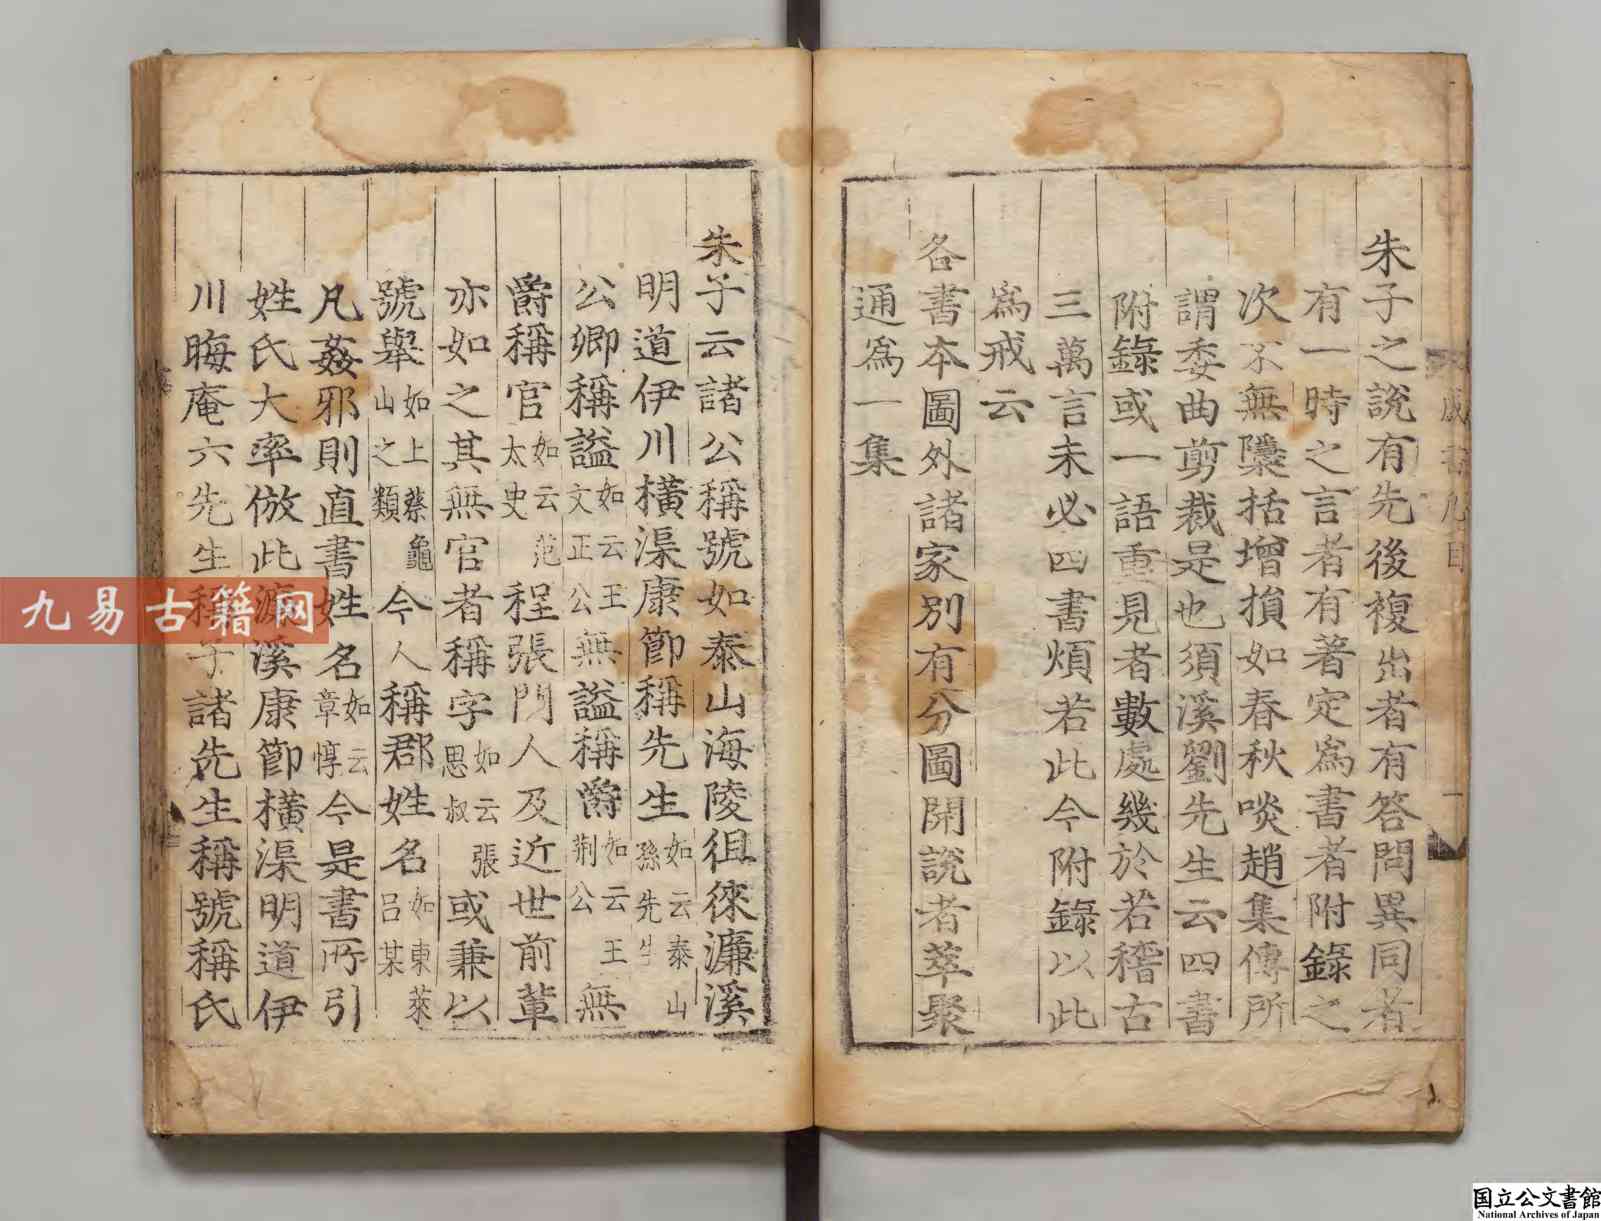 朱子之說有先後複出者有答問異同者
有一時之言者有著定爲書者附錄之
次不無櫽括增損如春秋啖趙集傳所
謂委曲剪裁是也須溪劉先生云四書
附錄或一語重見者數處幾於若稽古
三萬言未必四書煩若此今附錄以此
爲戒云
各書本圖外諸家別有分圖開說者萃聚
通爲一集
朱子云諸公稱號如泰山海陵徂徠濂溪
明道伊川橫渠康節稱先生如云泰山孫先生
公卿稱謚如云王文正公無謚稱爵如云王荆公無
爵稱官如云范太史程張門人及近世前輩
亦如之其無官者稱字如云張思叔或兼以
號舉如上蔡龜山之類今人稱郡姓名如東萊呂某
凡姦邪則直書姓名如云章惇今是書所引
姓氏大率倣此濂溪康節橫渠明道伊
川晦庵六先生稱子諸先生稱號稱氏
九易古籍网
国立公文書館
National Archives of Japan